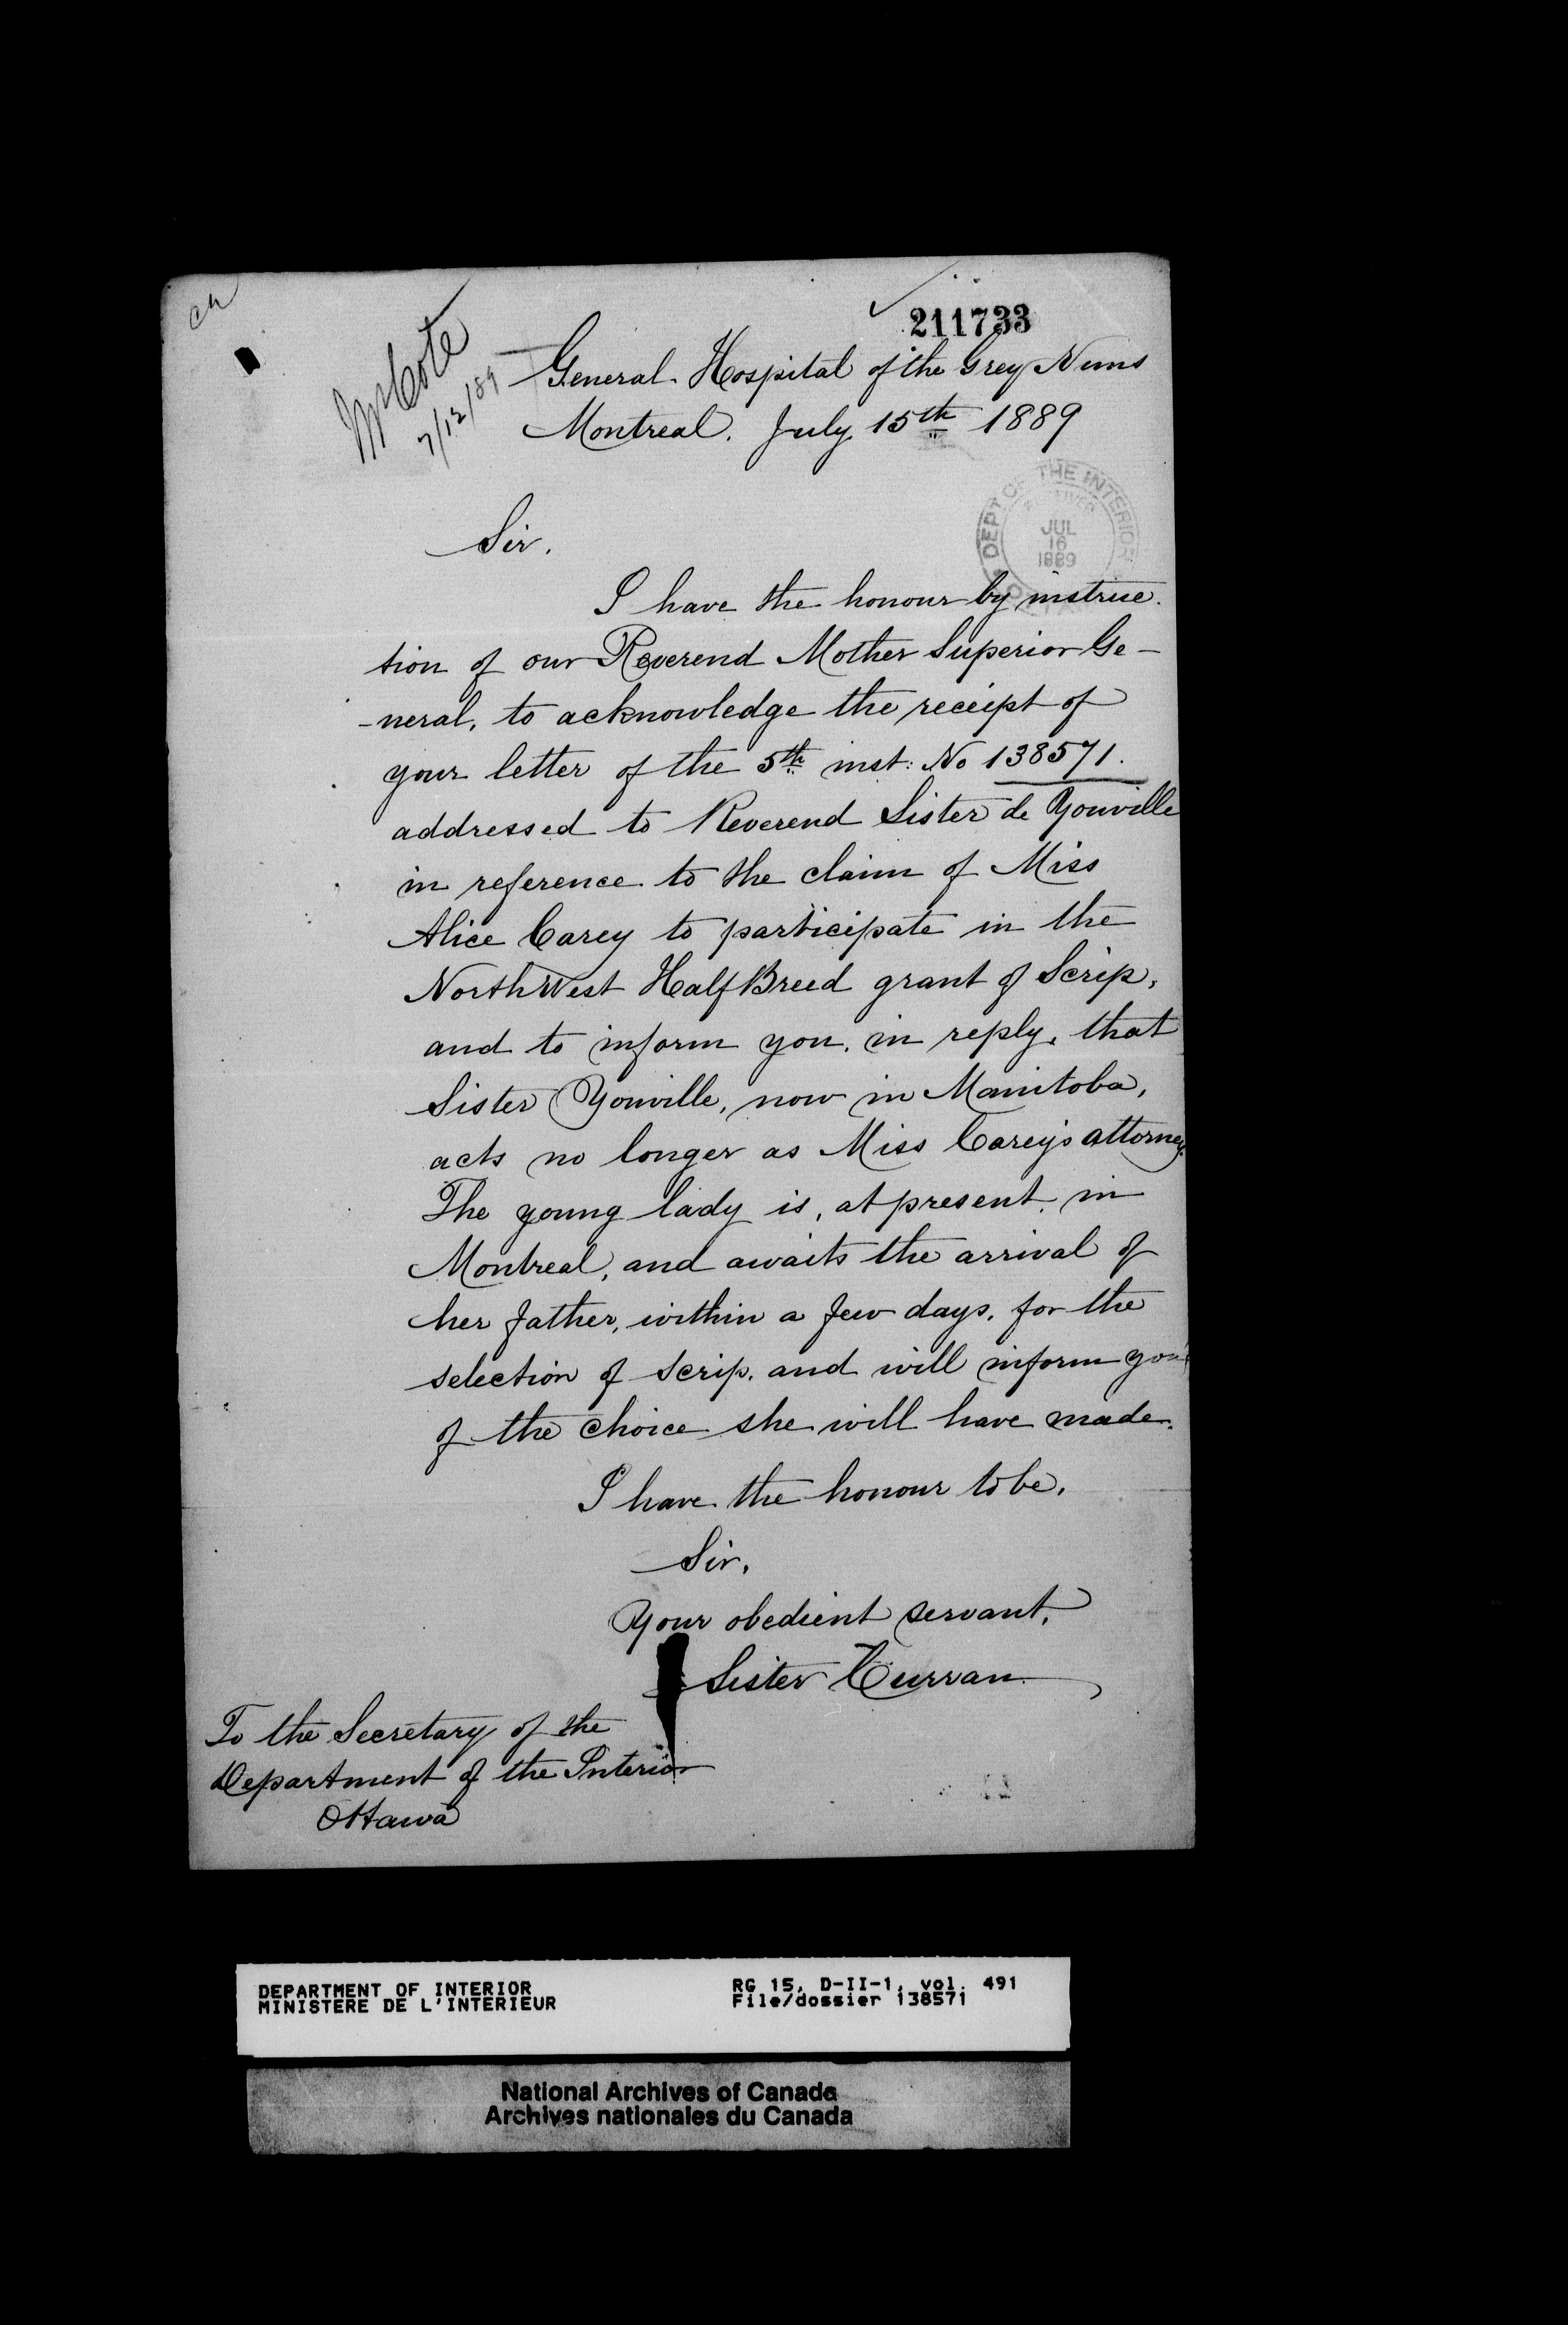 ch
211733
Mr Cote
7/12/89
General Hospital of the Grey Nuns
Montreal. July 15th 1889
DEPT OF THE INTERIOR
JUL
16
1889
Sir.
I have the honour by instruc.
tion of our Reverend Mother Superior Ge-
-neral, to acknowledge the receipt of
your letter of the 5th inst: No 138571.
addressed to Reverend Sister de Youville
in reference to the claim of Miss
Alice Carey to participate in the
NorthWest HalfBreed grant of Scrip,
and to inform you, in reply, that
Sister Youville, now in Manitoba,
acts no longer as Miss Carey's attorney.
The young lady is, at present, in
Montreal, and awaits the arrival of
her father, within a few days, for the
selection of scrip, and will inform you
of the choice she will have made.
I have the honour to be,
Sir,
Your obedient servant,
Sister Curran
To the Secretary of the
Department of the Interior
Ottawa
DEPARTMENT OF INTERIOR
MINISTERE DE L'INTERIEUR
RG 15, D-II-1, vol. 491
File/dossier 138571
National Archives of Canada
Archives nationales du Canada